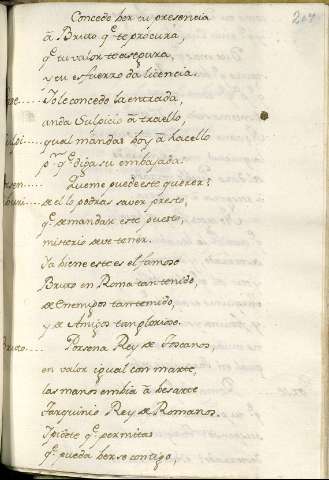 207
Concedo por tu presencia
â Bruto qe. te procura,
qe. tu valor te asegura,
y su esfuerzo da licencia.
Yo le concedo la entrada,
anda Sulpicio â traello,
qual mandas boy â hacello
pa. qe. diga su embajada.
Que me puede este querer?
de el lo podras saver presto,
qe. demandar este puesto,
misterio deve tener.
Ya biene este es el famoso
Bruto en Roma tan tenido,
de Enemigos tan temido,
y de Amigos tan glorioso.
Bruto.... Porsena Rey de Toscanos,
en valor igual con marte,
las manos embia â besarte
Tarquinio Rey de Romanos.
Y pidete qe. permitas
qe. pueda verse contigo,